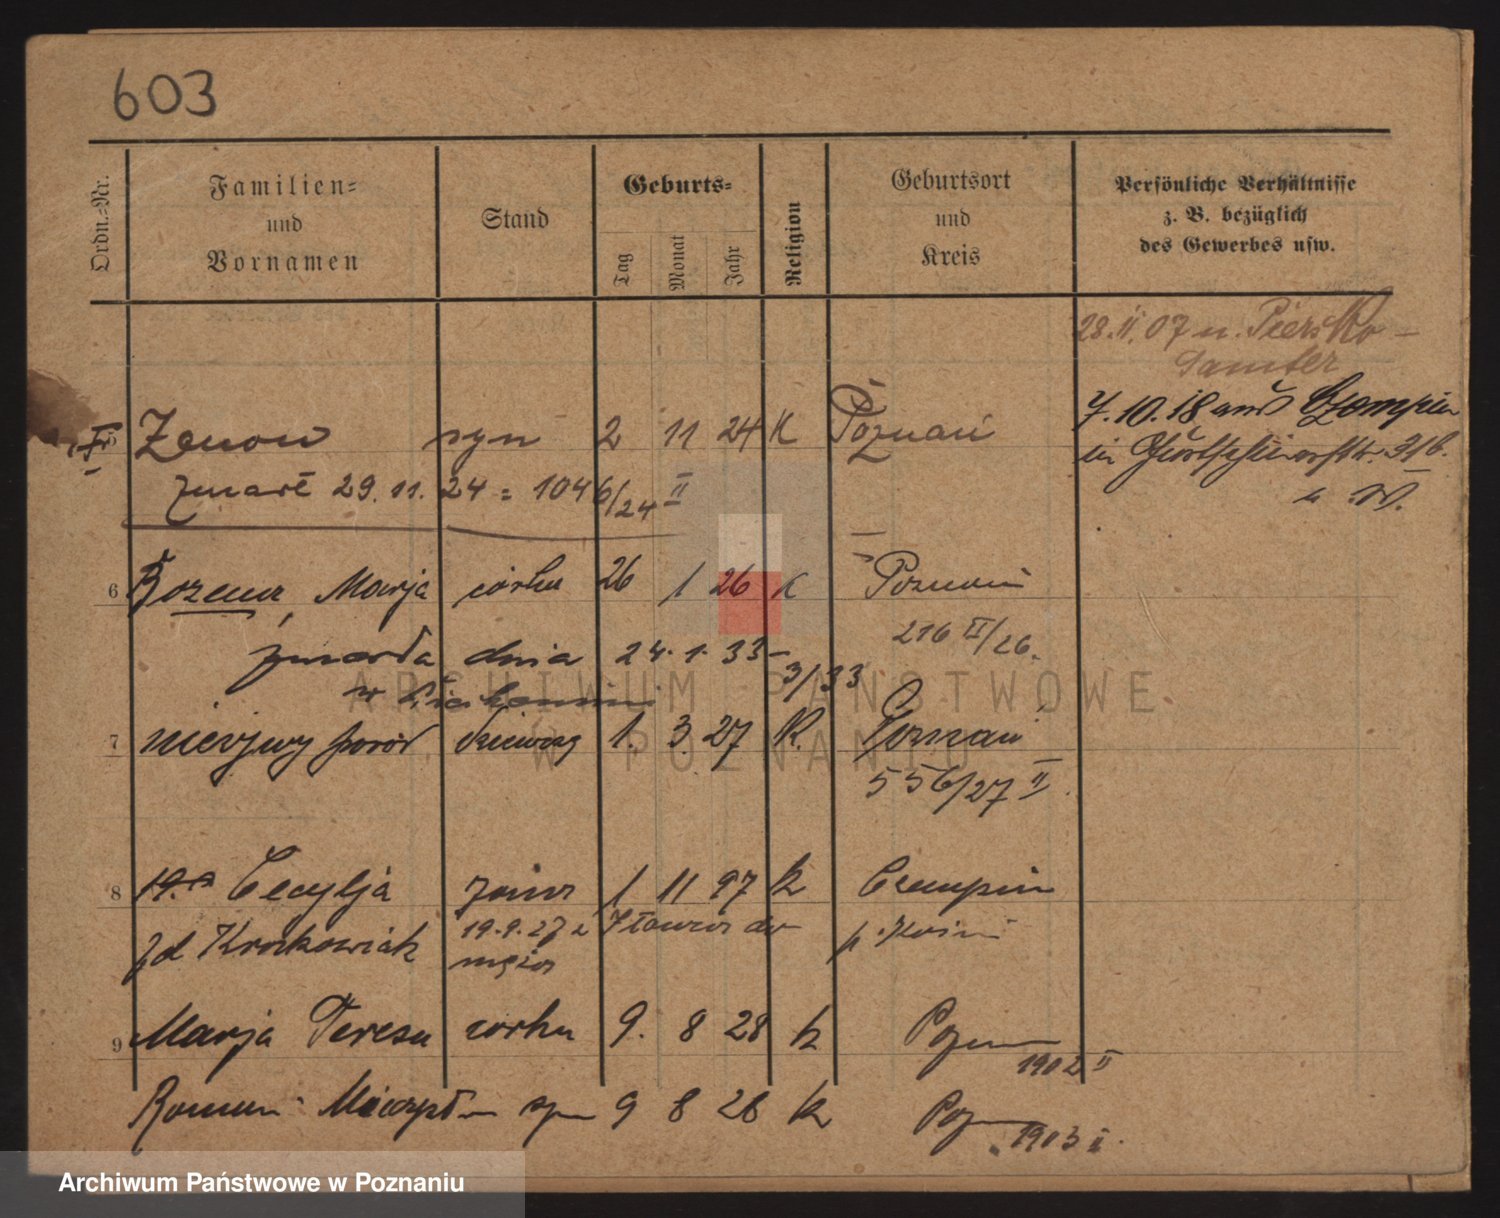 603
Ordn.=Nr.
Familien= und Vornamen
Stand
Geburts=
Tag
Monat
Jahr
Religion
Geburtsort und Kreis
Persönliche Verhältnisse z. B. bezüglich des Gewerbes usw.
28. II. 07 n. Piersko
Samter
7.10.18 aus Czempin
in
5 Zenon syn 2 11 24 K Poznań
zmarł 29.11.24 = 1046/24 II
6 Bożena, Marja córka 26 1 26 K Poznań
216 II/26.
zmarła dnia 24.1.33
3/33
w
7 nieżywy poród 1. 3. 27 K. Poznań
556/27 II
8 Cecylja żona 1 11 97 k Czempin
zd Krokowiak 19.9.27 z
męża
9 Marja Teresa córka 9. 8 28 k Pozn
1902 II
Roman Mieczysław syn 9 8 28 k Pozn
1903 II.
ARCHIWUM PAŃSTWOWE
W POZNANIU
Archiwum Państwowe w Poznaniu